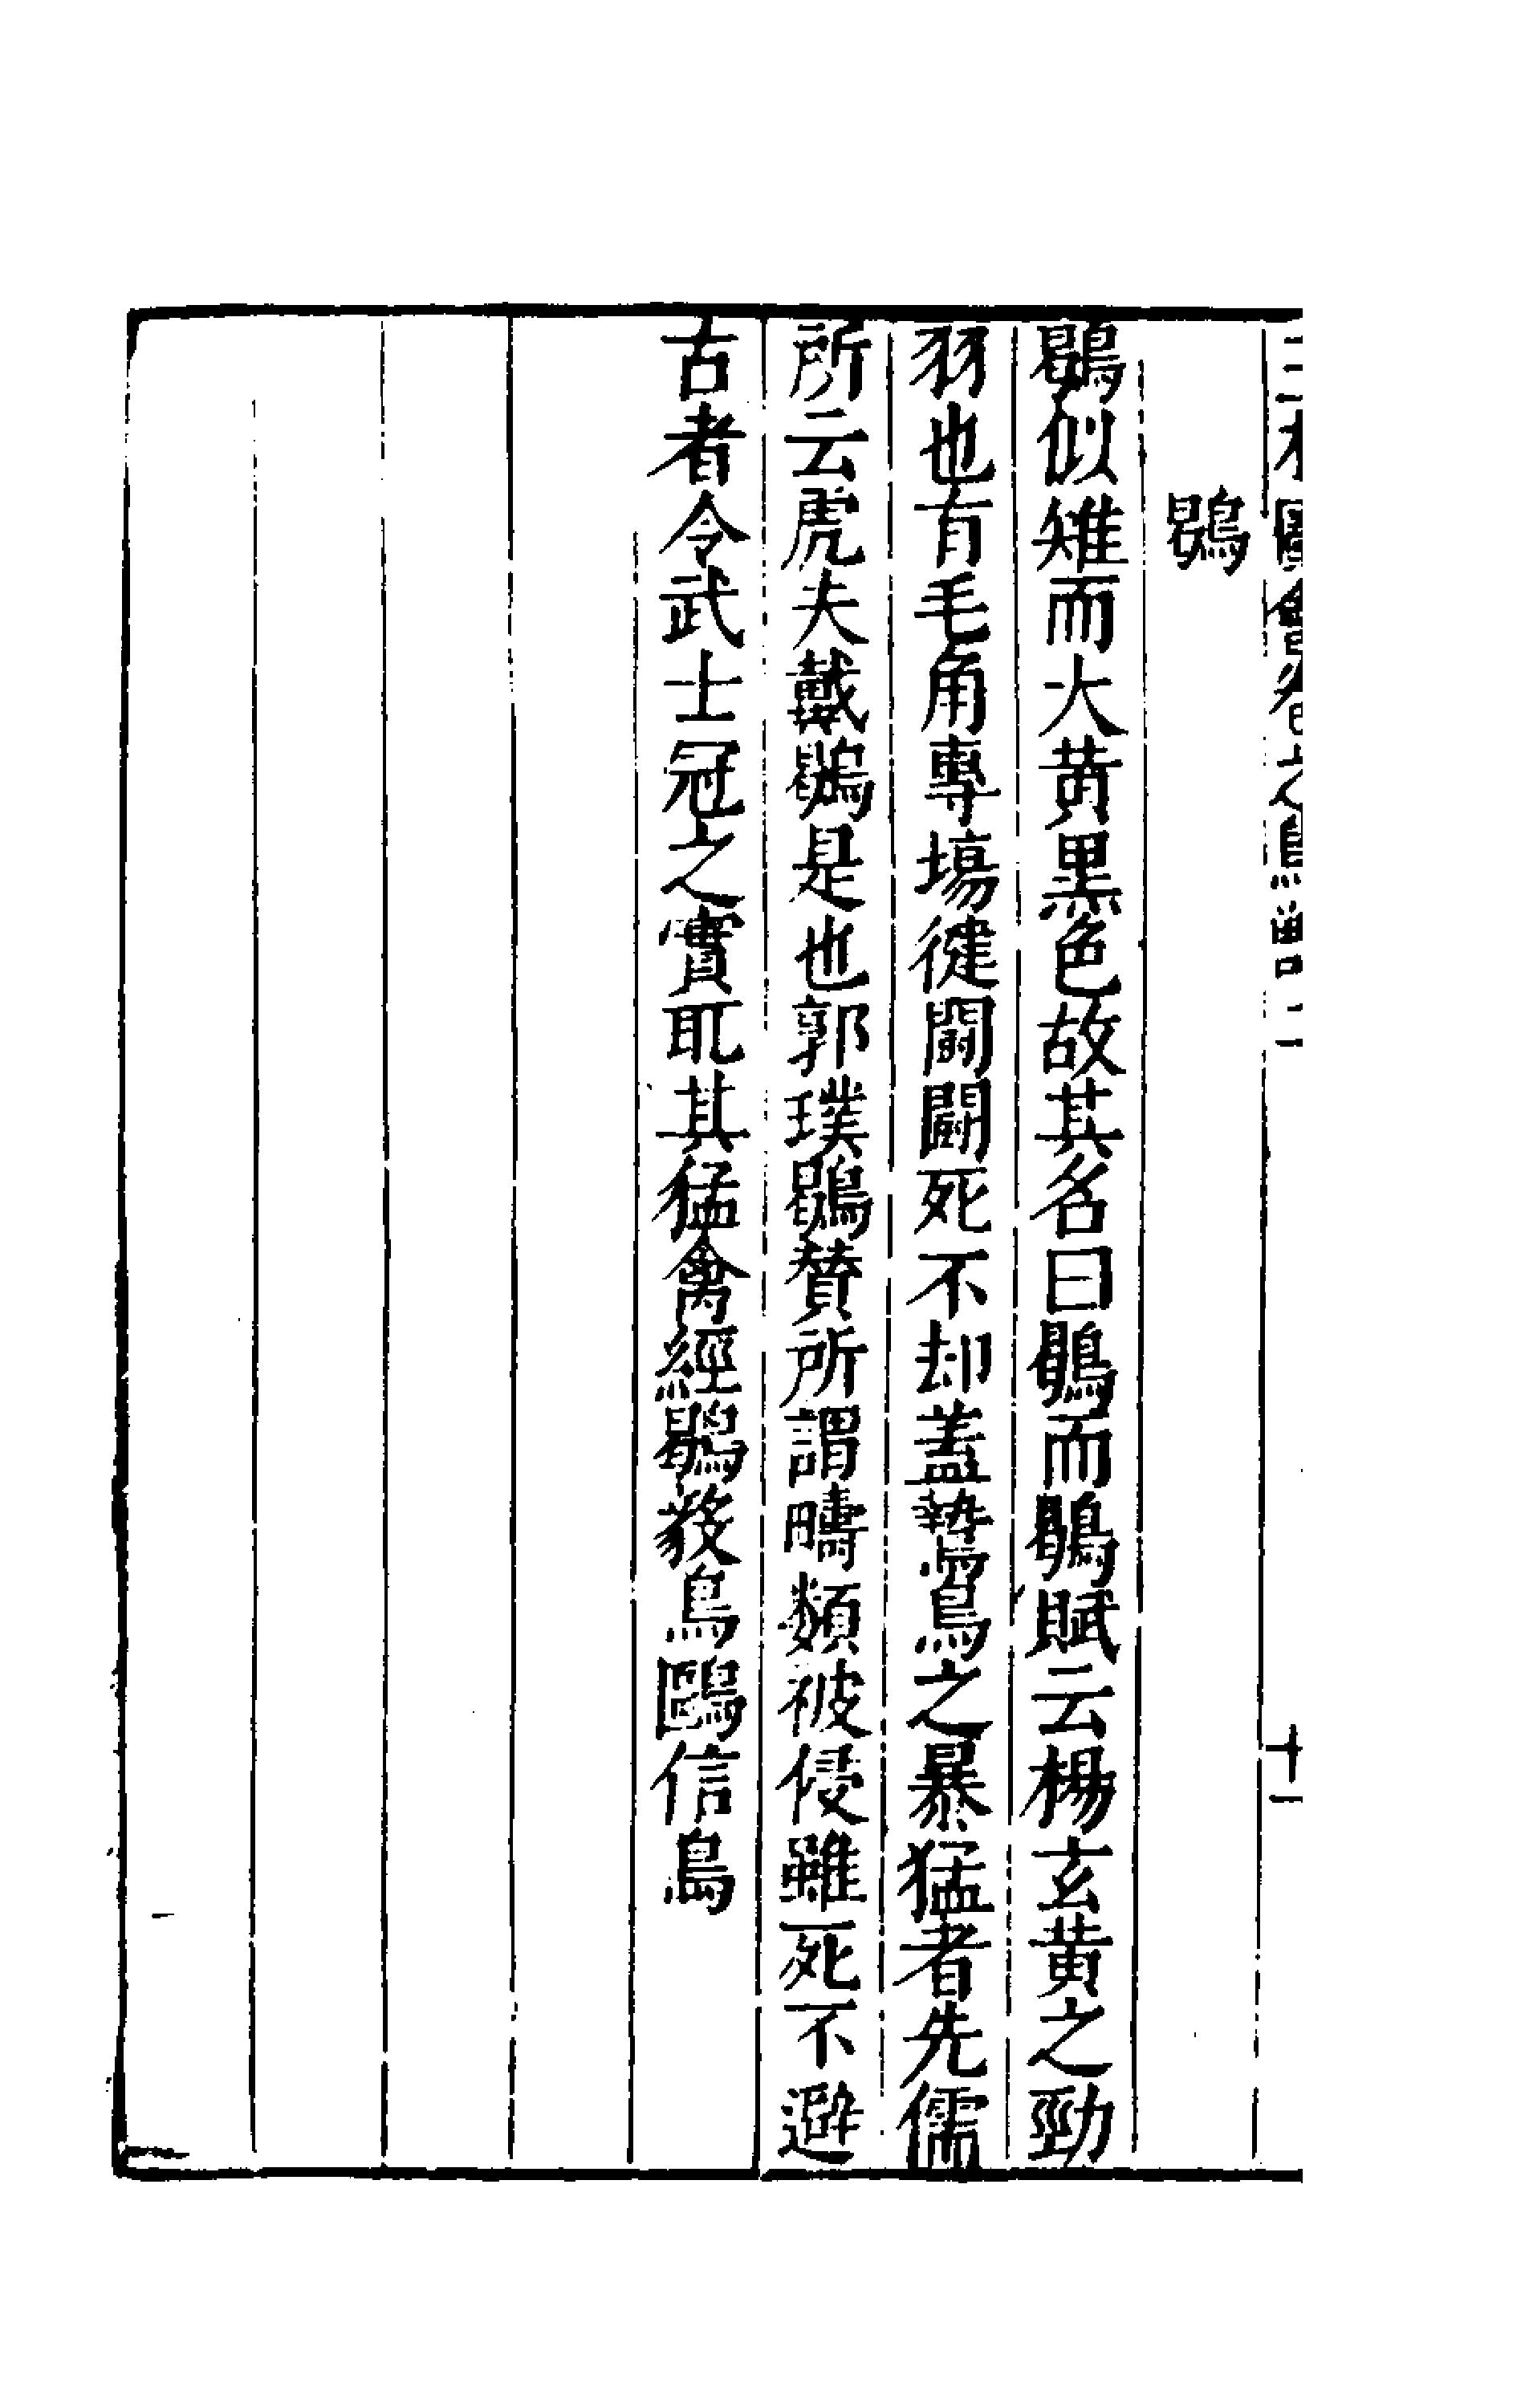 鶡
鶡似雉而大黃黑色故其名曰鶡而鶡賦云楊玄黃之勁
羽也有毛角專場徤鬭鬭死不却蓋鷙鳥之暴猛者先儒
所云虎夫戴鶡是也郭璞鶡賛所謂疇類被侵雖死不避
古者令武士冠之實取其猛禽經鶡毅鳥鷗信鳥
十一